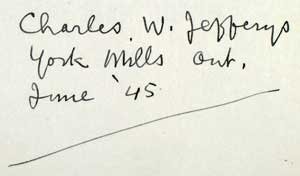 Charles W. Jefferys
York Mills Ont.
June '45